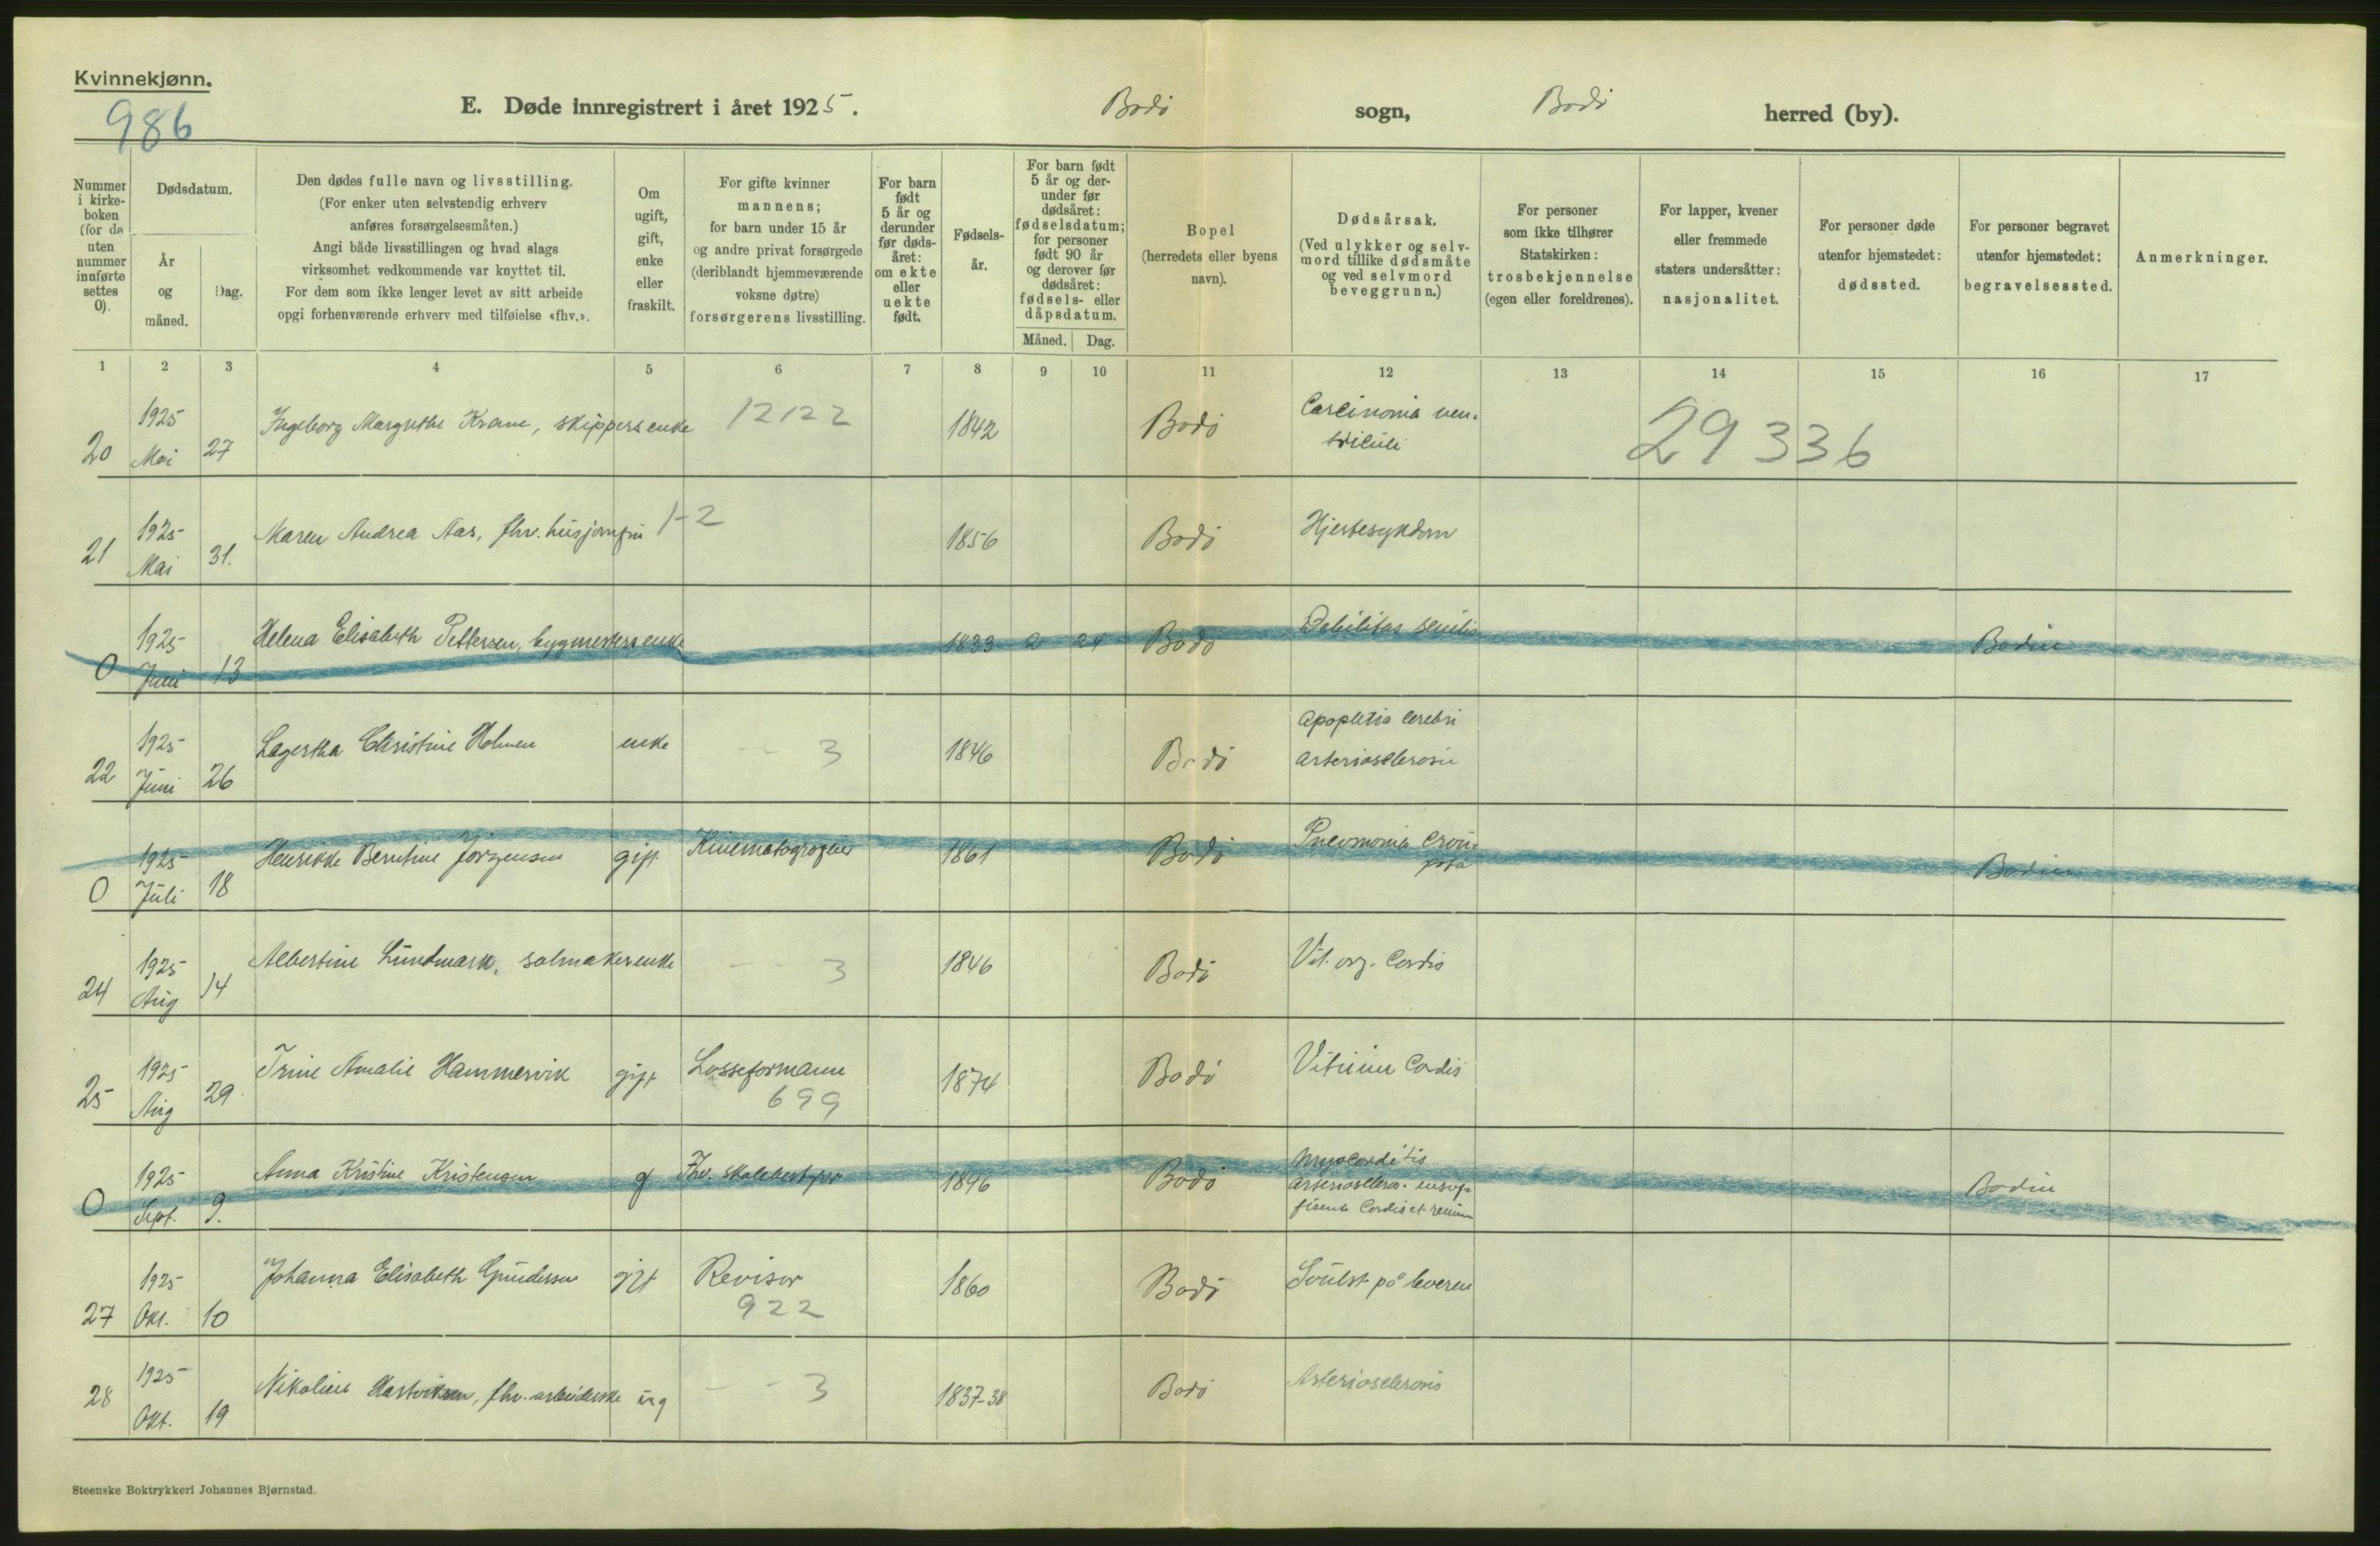 Kvinnekjønn.
986
E. Døde innregistrert i året 1925. Bodö sogn, Bodö herred (by).
Nummer i kirkeboken (for de uten nummer innførte settes 0).
Dødsdatum.
År og måned.
Dag.
Den dødes fulle navn og livsstilling.
(For enker uten selvstendig erhverv
anføres forsørgelsesmåten.)
Angi både livsstillingen og hvad slags
virksomhet vedkommende var knyttet til.
For dem som ikke lenger levet av sitt arbeide
opgi forhenværende erhverv med tilføielse «fhv.».
Om ugift, gift, enke eller fraskilt.
For gifte kvinner
mannens;
for barn under 15 år
og andre privat forsørgede
(deriblandt hjemmeværende
voksne døtre)
forsørgerens livsstilling.
For barn født 5 år og derunder før dødsåret: om ekte eller uekte født.
Fødselsår.
For barn født 5 år og derunder før dødsåret: fødselsdatum; for personer født 90 år og derover før dødsåret: fødsels- eller dåpsdatum.
Måned. Dag.
Bopel
(herredets eller byens
navn).
Dødsårsak.
(Ved ulykker og selvmord tillike dødsmåte og ved selvmord beveggrunn.)
For personer
som ikke tilhører
Statskirken:
trosbekjennelse
(egen eller foreldrenes).
For lapper, kvener
eller fremmede
staters undersåtter:
nasjonalitet.
For personer døde
utenfor hjemstedet:
dødssted.
For personer begravet
utenfor hjemstedet:
begravelsessted.
Anmerkninger.
1 2 3 4 5 6 7 8 9 10 11 12 13 14 15 16 17
20 1925 Mai 27 Ingeborg Margrethe Krane, skippersenke 12122 1842 Bodö Carcinoma ventriculi 29 336
21 1925 Mai 31. Maren Andrea Aas, fhv. husjomfru 1-2 1856 Bodö Hjertesykdom
0 1925 Juni 13 Helena Elisabeth Pettersen, bygmestersenke 1833 2 24 Bodö Debilitas senilis Bodin
22 1925 Juni 26 Lagertha Christine Holmen enke 3 1846 Bodö Apoplexia cerebri Arteriosclerosis
0 1925 Juli 18 Henrikke Berntine Jörgensen gift 1861 Bodö Pneumonia crouposa Bodin
24 1925 Aug 14 Albertine Lundmark, salmakerenke 3 1846 Bodö Vit. org. Cordis
25 1925 Aug 29 Trine Amalie Hammervik gift Losseformann 699 1874 Bodö Vitium Cordis
0 1925 Sept. 9. Anna Kristine Kristensen g Fhv. skolebestyrer 1846 Bodö Myocarditis Arteriosclero. Cordis et renum Bodin
27 1925 Okt. 10 Johanna Elisabeth Gundersen gift Revisor 922 1860 Bodö Svulst på leveren
28 1925 Okt. 19 Nikoline Hartviksen, fhv. arbeiderske ug 3 1837-38 Bodö Arteriosclerosis
Steenske Boktrykkeri Johannes Bjørnstad.